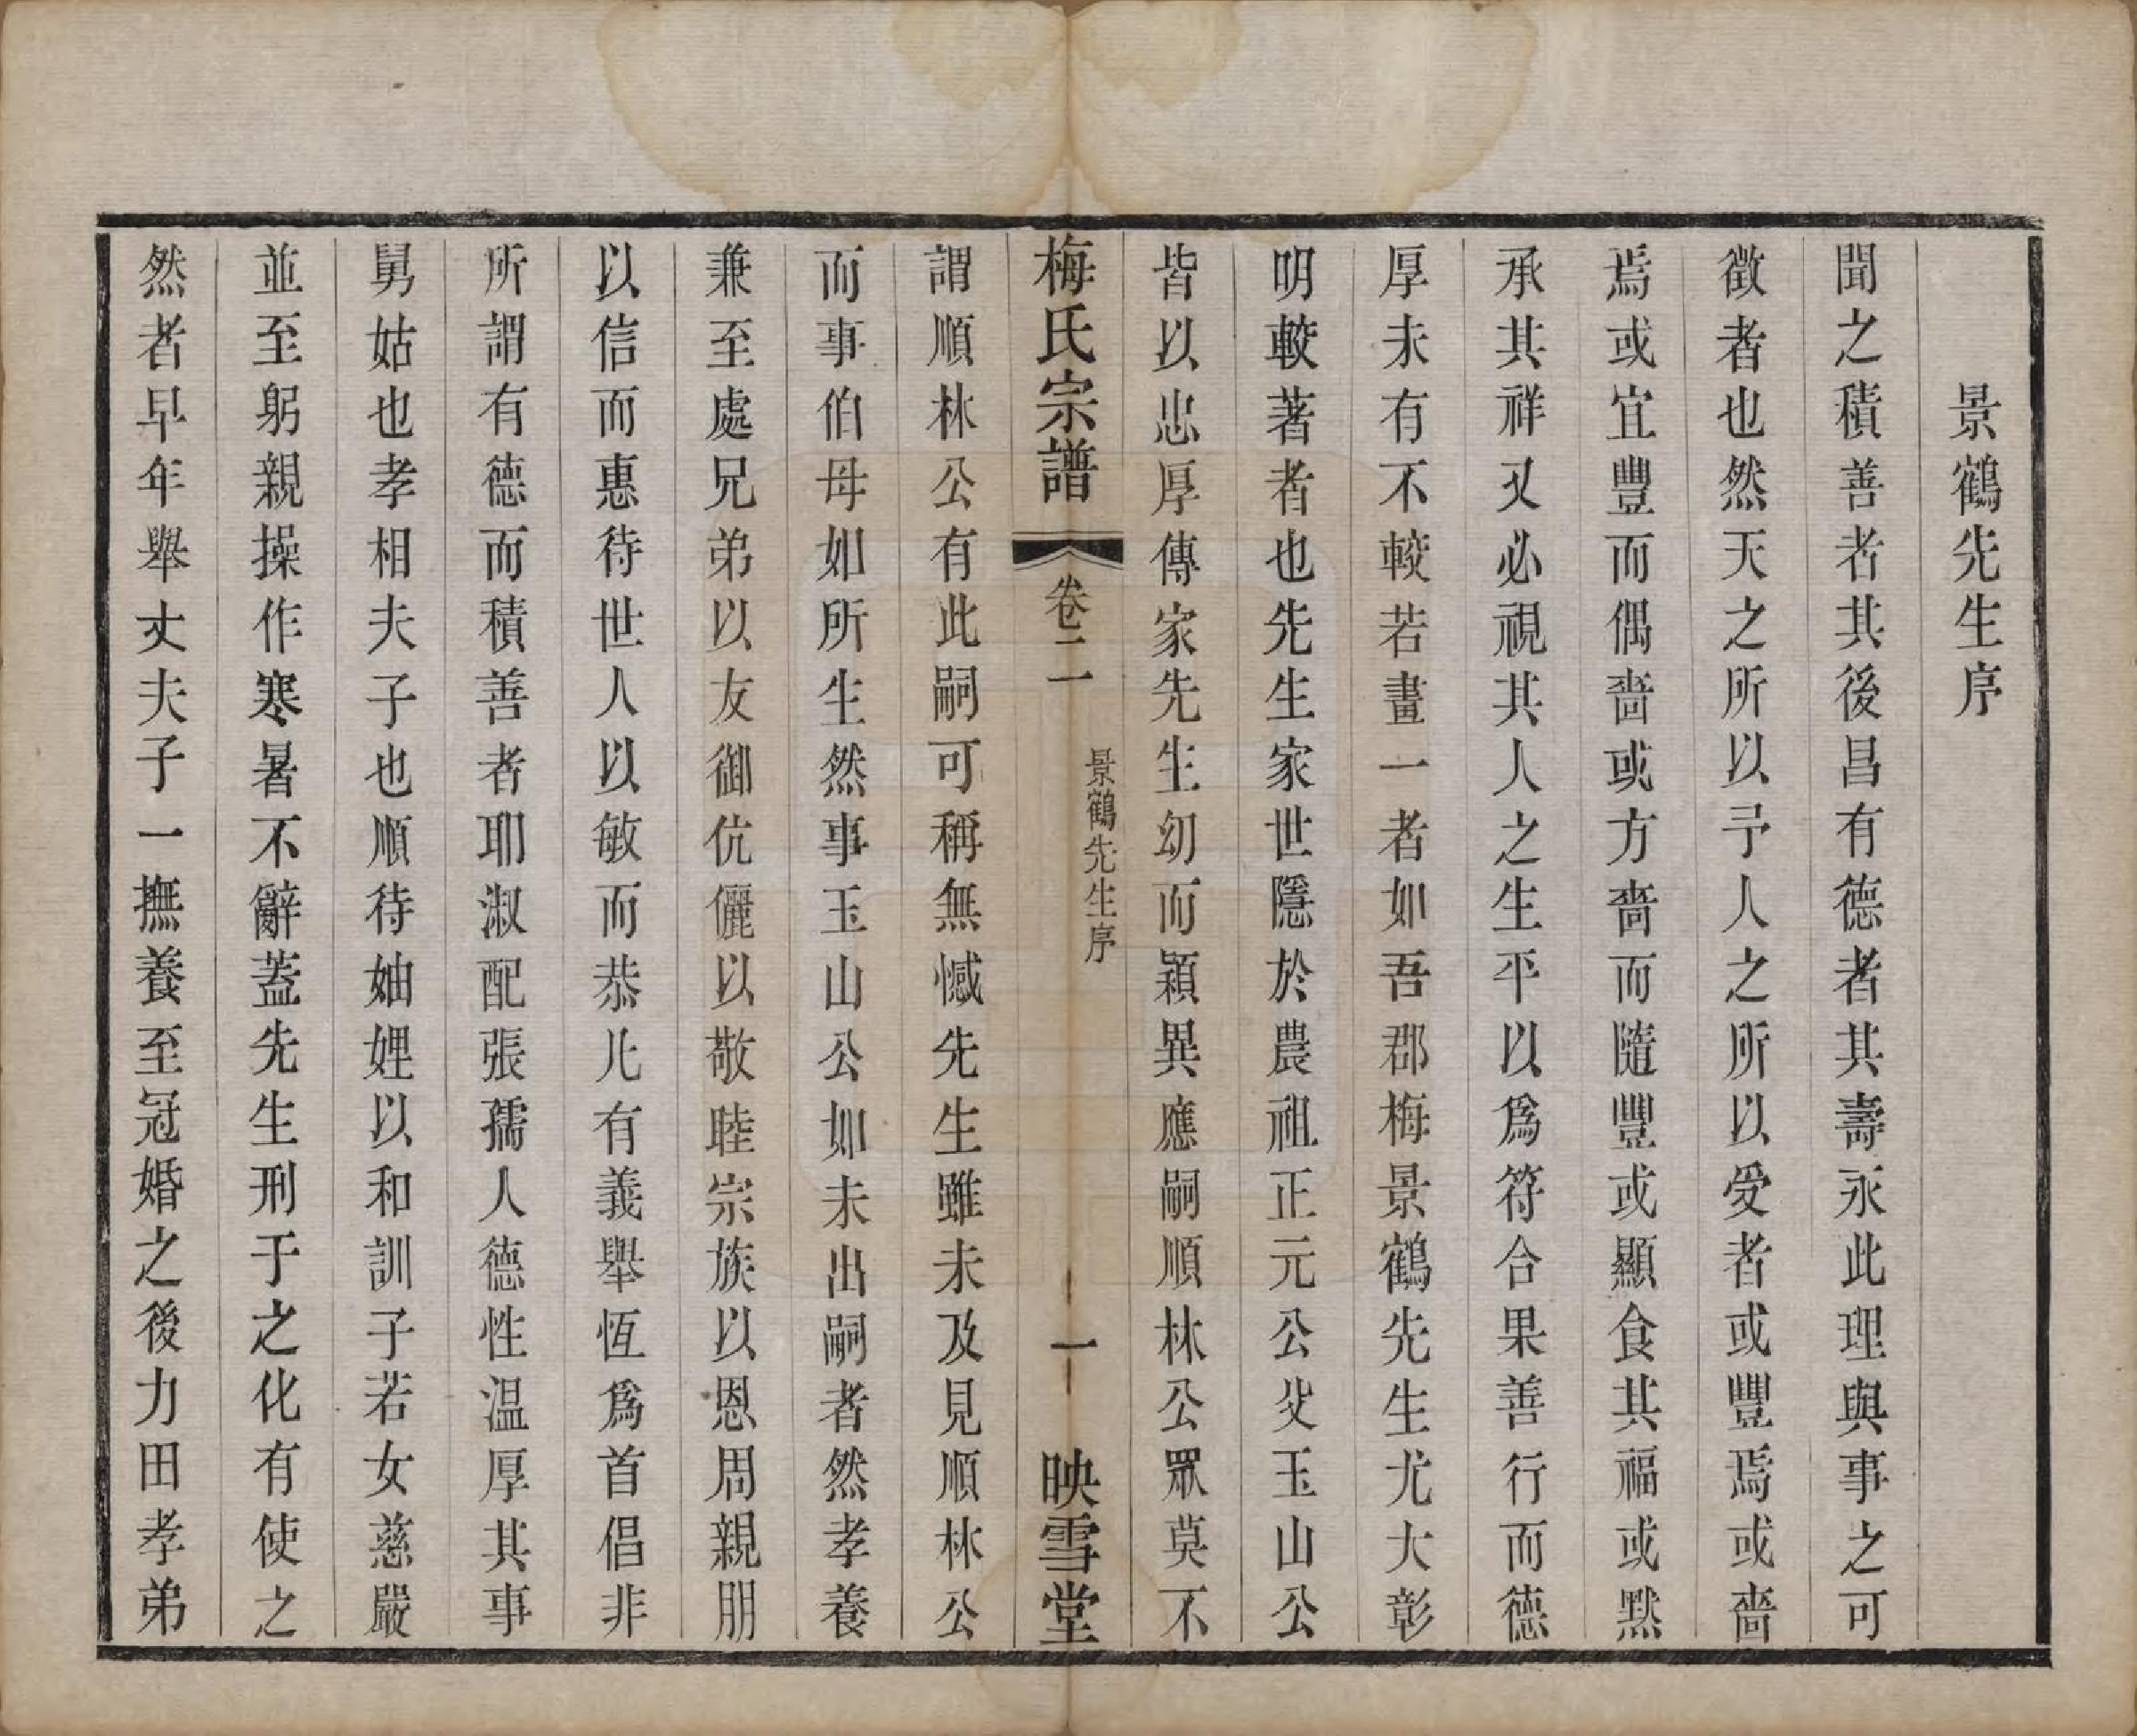 景鶴先生序
聞之積善者其後昌有德者其壽永此理與事之可
徵者也然天之所以予人之所以受者或豐焉或嗇
焉或宜豐而偶嗇或方嗇而隨豐或顯食其福或黙
承其祥又必視其人之生平以爲符合果善行而德
厚未有不較若畫一者如吾郡梅景鶴先生尤大彰
明較著者也先生家世隱於農祖正元公父玉山公
皆以忠厚傳家先生幼而穎異應嗣順林公眾莫不
梅氏宗譜 卷二一 景鶴先生序 一 映雪堂
謂順林公有此嗣可稱無憾先生雖未及見順林公
而事伯母如所生然事玉山公如未出嗣者然孝養
兼至處兄弟以友御伉儷以敬睦宗族以恩周親朋
以信而惠待世人以敏而恭凡有義舉恆爲首倡非
所謂有德而積善者耶淑配張孺人德性温厚其事
舅姑也孝相夫子也順待妯娌以和訓子若女慈嚴
並至躬親操作寒暑不辭蓋先生刑于之化有使之
然者早年舉丈夫子一撫養至冠婚之後力田孝弟